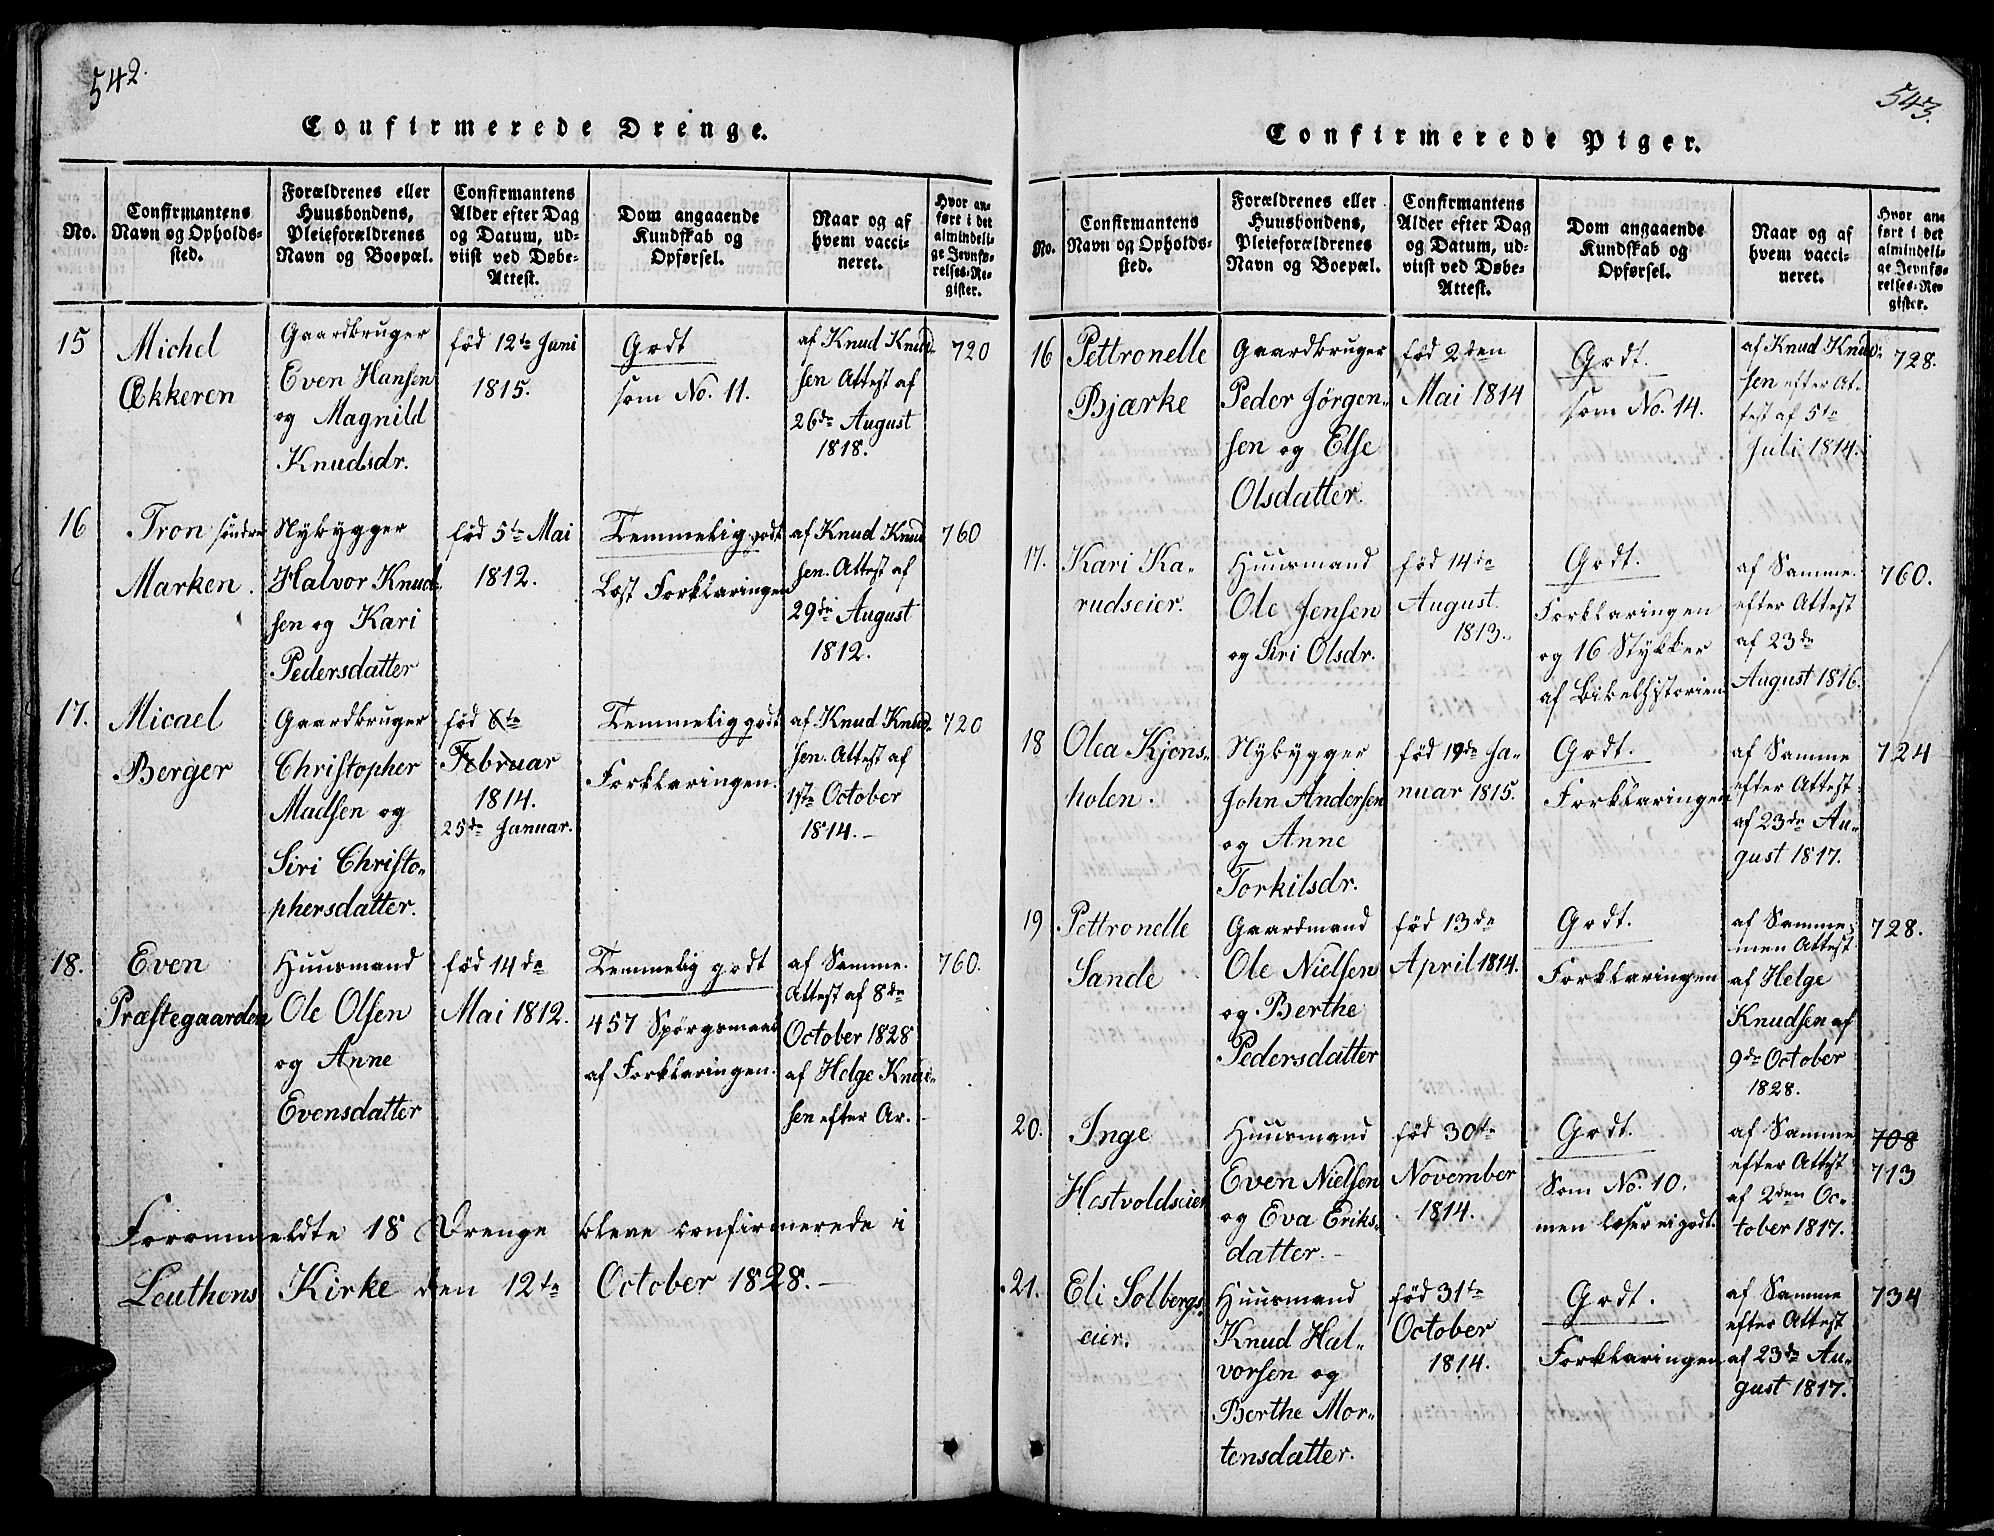 542.
Confirmerede Drenge.
No.
Confirmantens
Navn og Opholds-
sted.
Forældrenes eller
Huusbondens,
Pleieforældrenes
Navn og Boepæl.
Confirmantens
Alder efter Dag
og Datum, ud-
viist ved Døbe-
Attest.
Dom angaaende
Kundskab og
Opførsel.
Naar og af
hvem vacci-
neret.
Hvor an-
ført i det
almindeli-
ge Jevnfø-
relses-Re-
gister.
15
Michel
Økkeren
Gaardbruger
Even Hansen
og Magnild
Knudsdr.
fød 12te Juni
1815.
Godt
som No. 11.
af Knud Knud-
sen Attest af
26de August
1818.
720
16
Tron søndre
Marken.
Nybygger
Halvor Knud-
sen og Kari
Pedersdatter
fød 5te Mai
1812.
Temmelig godt
Læst Forklaringen
af Knud Knud
sen. Attest af
29de August
1812.
760
17.
Micael
Berger
Gaardbruger
Christopher
Madsen og
Siri Christo-
phersdatter.
fød 6te
Februar
1814.
25de Januar.
Temmelig godt
Forklaringen.
af Knud Knud-
sen. Attest af
1ste October
1814.-
720
18.
Even
Præstegaarden
Huusmand
Ole Olsen
og Anne
Evensdatter
fød 14de
Mai 1812.
Temmelig godt
457 Spørgsmaal
af Forklaringen.
af Samme.
Attest af 8de
October 1828
af Helge Knud-
sen efter Ar.-
760.
Forommeldte 18 Drenge bleve confirmerede i
Leuthens Kirke den 12te October 1828.-
543.
Confirmerede Piger.
No.
Confirmantens
Navn og Opholds-
sted.
Forældrenes eller
Huusbondens,
Pleieforældrenes
Navn og Boepæl.
Confirmantens
Alder efter Dag
og Datum, ud-
viist ved Døbe-
Attest.
Dom angaaende
Kundskab og
Opførsel.
Naar og af
hvem vacci-
neret.
Hvor an-
ført i det
almindeli-
ge Jevnfø-
relses-Re-
gister.
16
Pettronelle
Bjærke
Gaardbruger
Peder Jørgen-
sen og Else
Olsdatter.
fød 2den
Mai 1814
Godt.
som No. 14.
af Knud Knud-
sen efter At-
test af 5te
Juli 1814.
728.
17.
Kari Ka-
rudseier.
Huusmand
Ole Jensen
og Siri Olsdr.
fød 14de
August.
1813.
Godt.
Forklaringen
og 16 Stykker
af Bibelhistorien
af Samme.
efter Attest
af 23de
August 1816.
760.
18
Olea Kjons-
holen.
Nybygger
John Andersen
og Anne
Torkilsdr.
fød 19de Ja-
nuar 1815.
Godt.
Forklaringen
af Samme
efter Attest
af 23de Au-
gust 1817.
724
19
Pettronelle
Sande
Gaardmand
Ole Nielsen
og Berthe
Pedersdatter
fød 13de
April 1814.
Godt.
Forklaringen
af Samme,
men Attest
af Helge
Knudsen af
9de October
1828.
728.
20.
Inge
Hestvoldseier
Huusmand
Even Nielsen
og Eva Eriks-
datter.-
fød 30te
November
1814.
Godt.
Som No. 10.
men læser ei godt.
af Samme
efter Attest
af 2den Oc-
tober 1817.
708
713
21.
Eli Solbergs-
eier.
Huusmand
Knud Hal-
vorsen og
Berthe Mor-
tensdatter.
fød 31te
October
1814.
Godt.
Forklaringen
af Samme
efter Attest
af 23de Au-
gust 1817.
734